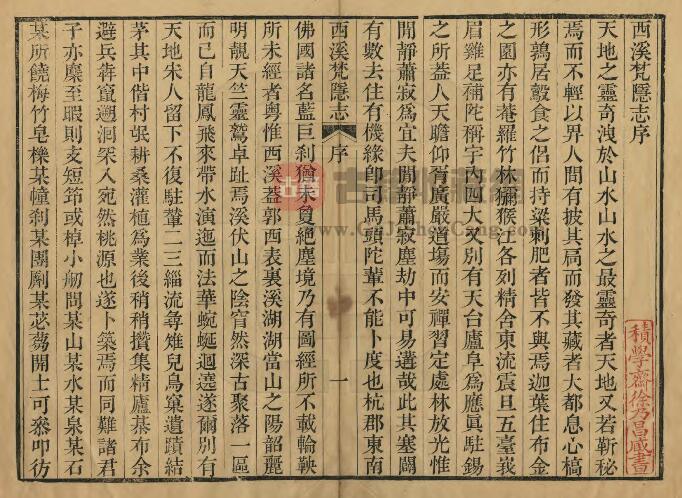 西溪梵隱志序
天地之靈奇洩於山水山水之最靈奇者天地又若靳秘
焉而不輕以畀人間有披其扃而發其藏者大都息心槁
形鶉居鷇食之侶而持粱刺肥者皆不與焉迦葉住布金
之園亦有菴羅竹林獼猴江各列精舍東流震旦五臺峩
眉雞足補陀稱宇內四大又別有天台廬阜爲應眞駐錫
之所葢人天瞻仰有廣嚴道場而安禪習定處林放光惟
閒靜蕭寂爲宜夫閒靜蕭寂塵劫中可易遘哉此其塞闢
有數去住有機緣卽司馬頭陀輩不能卜度也杭郡東南
積學齋徐乃昌藏書
西溪梵隱志 序 一
佛國諸名藍巨刹猶未夐絕塵境乃有圖經所不載輪鞅
所未經者粵惟西溪葢郭西表裏溪湖湖當山之陽韶麗
明靚天竺靈鷲卓趾焉溪伏山之陰窅然深古聚落一區
而已自龍鳳飛來帶水演迤而法華蜿蜒迴遶遂爾別有
天地宋人留下不復駐輦二三緇流尋雉兒鳥窠遺蹟結
茅其中偕村氓耕桑灌植爲業後稍稍攢集精廬棊布余
避兵犇竄遡洄罙入宛然桃源也遂卜築焉而同難諸君
子亦麇至暇則支短笻或棹小舠問某山某水某泉某石
某所饒梅竹皂櫟某幢刹某團劘某苾蒭開士可叅叩彷
古籍